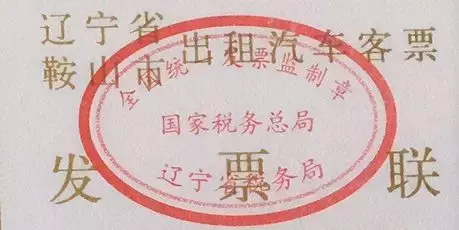 辽宁省
鞍山市
出租汽车客票
全国统一发票监制章
国家税务总局
辽宁省税务局
发票联